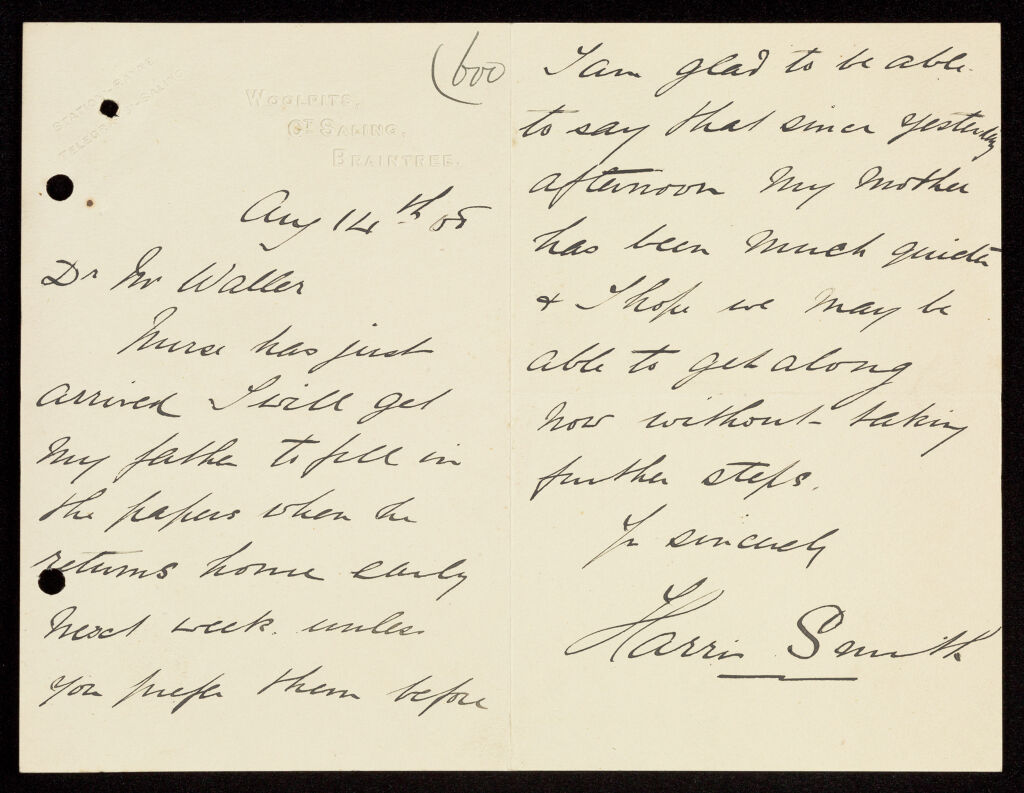 (600
STATION-RAYNE
TELEGRAMS-SALING
WOOLPITS,
GT SALING,
BRAINTREE.
Aug 14th 05
Dr Mr Waller
Nurse has just
arrived I will get
my father to fill in
the papers when he
returns home early
next week. unless
you prefer them before
I am glad to be able
to say that since yesterday
afternoon my mother
has been much quieter
& I hope we may be
able to get along
now without taking
further steps.
Yr sincerely
Harris Smith